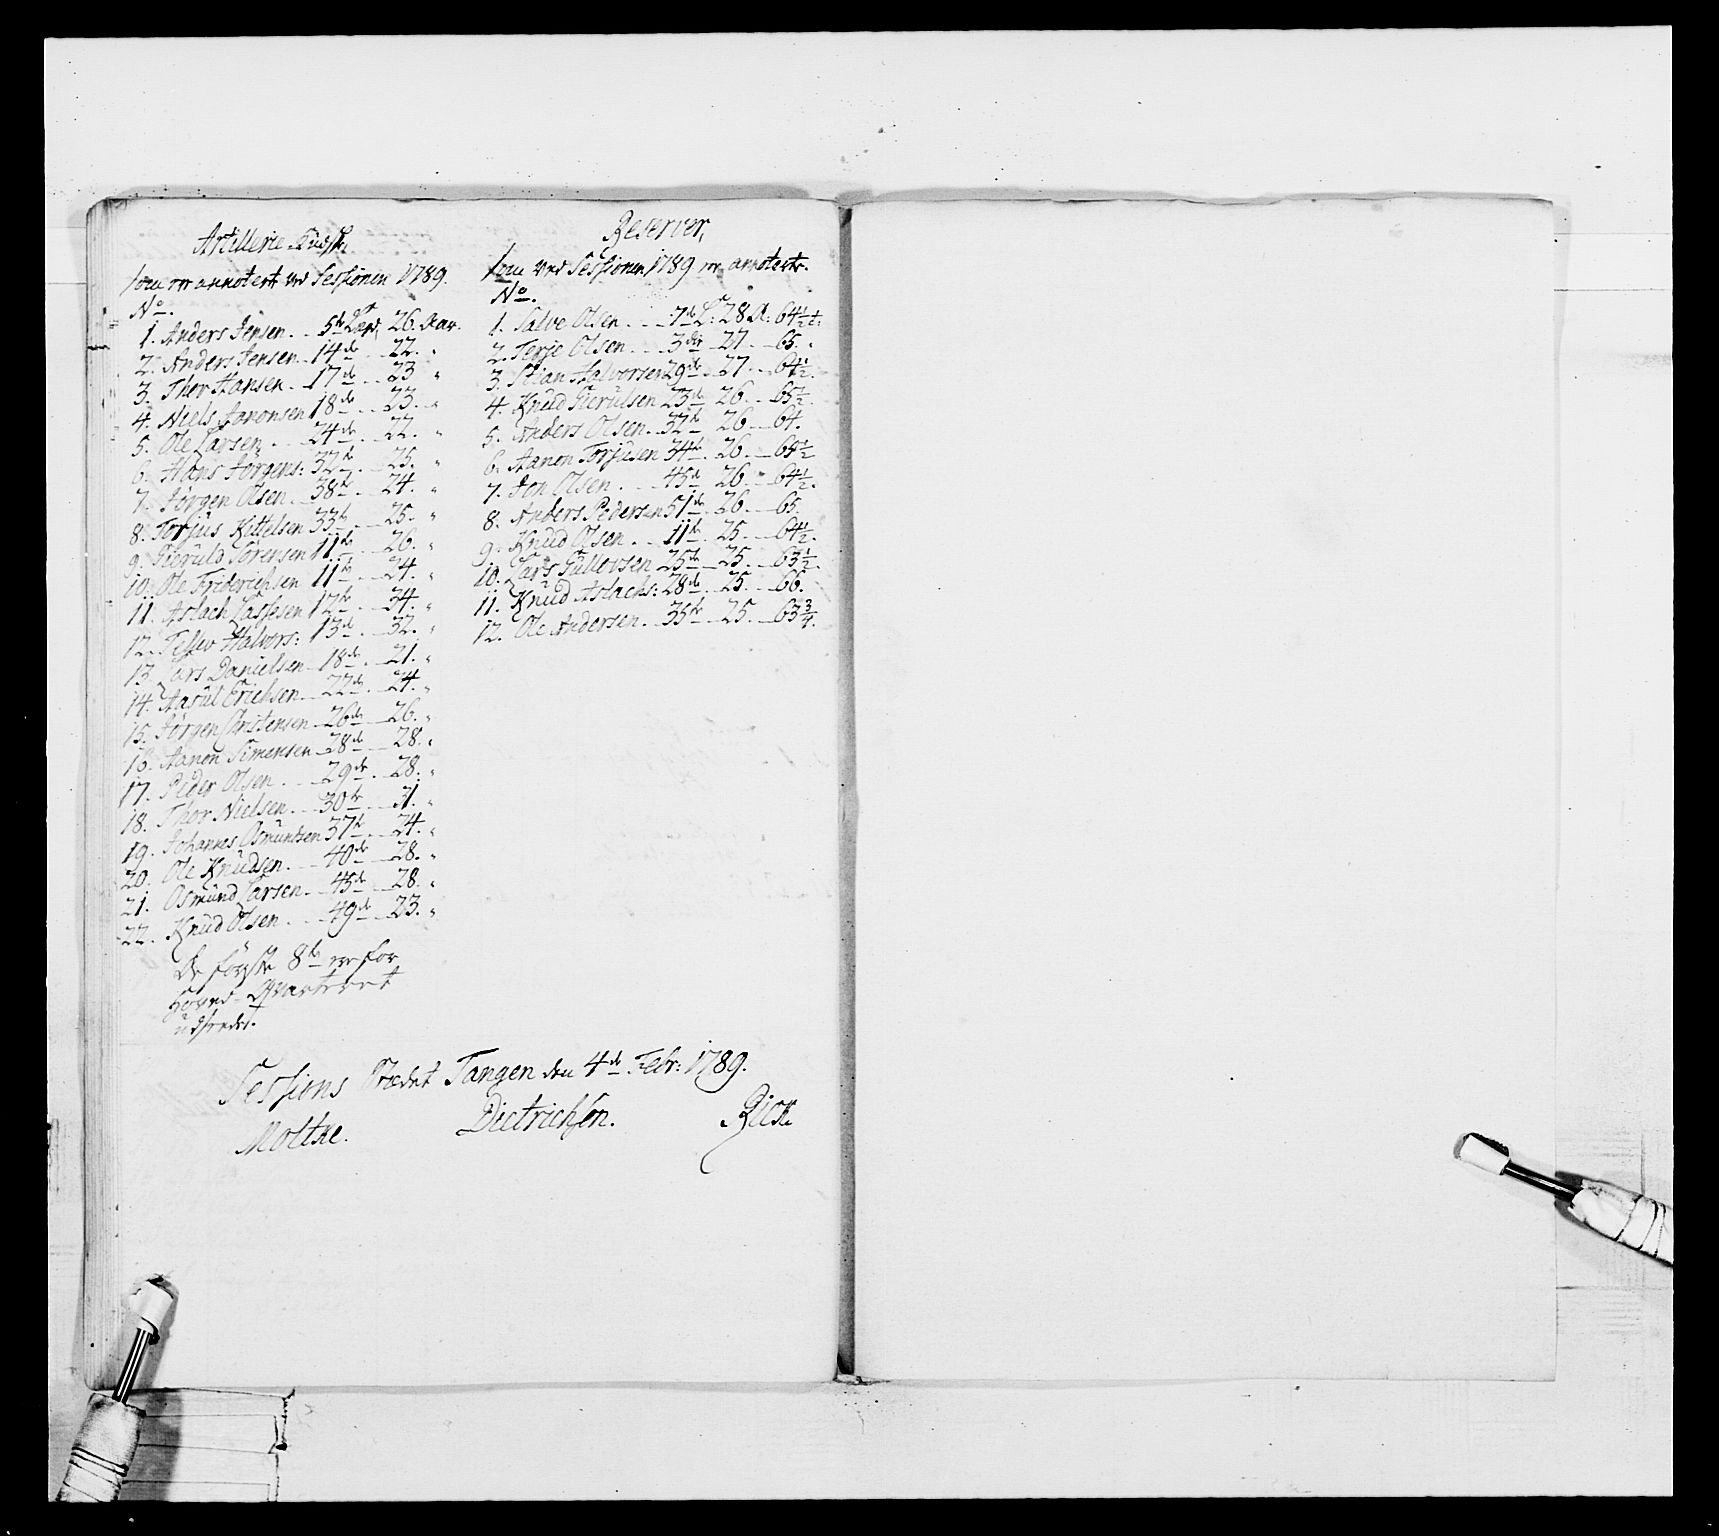 Artillerie Kudske
som er annotert ved Sessionen 1789.
No.
1. Anders Jensen . . 5te Lægd, 26. Aar.
2. Anders Jensen . . 14de . . 22. "
3. Thor Hansen . . 17de . . 23 "
4. Niels Aanonsen 18de . . 23. "
5. Ole Larsen . . . 24de . . 22. "
6. Hans Jörgens: 32te . . 25. "
7. Jörgen Olsen . . 38te . . 24. "
8. Torjus Kittelsen 33te . . 25. "
9. Gieruld Sörensen 11te . . 26. "
10. Ole Friderichsen 11te . . 24. "
11. Aslach Lassesen 12te . . 34. "
12. Tellev Halvors: 13de . . 32. "
13. Lars Danielsen 18de . . 21. "
14. Aasul Erichsen . . 22de . . 24. "
15. Jörgen Christensen 26de . . 26. "
16. Aanon Simensen 28de . . 28. "
17. Peder Olsen . . . 29de . . 28. "
18. Thor Nielsen . . . 30te . . 31. "
19. Johannes Osmundsen 37te . . 24. "
20. Ole Knudsen . . . 40de . . 28. "
21. Osmund Larsen . . 45de . . 28. "
22. Knud Olsen . . . 49de . . 23. "
De förste 8te ere for
Hoved-Qvarteret
udskrevet.
Reserver,
som ved Sessionen 1789 er annotert.
No.
1. Salve Olsen . . . 7de L: 28 A: 64 1/2 t:
2. Terje Olsen . . . 3die 27 . . 65. "
3. Stian Halvorsen 29de . . 27 . . 64 1/2.
4. Knud Gierulsen 23de 26 . . 65 1/2.
5. Anders Olsen . . 32te 26 . . 64.
6. Aanon Torjusen 34te . . 26 . . 64 1/2
7. Jon Olsen . . . 45de 26 . . 64 1/2.
8. Anders Pedersen 51de . . 26 . . 65.
9. Knud Olsen . . 11te . . 25 . . 64 1/2.
10. Lars Gullovsen 25de . . 25 . . 63 1/2.
11. Knud Aslachs: 28de . . 25 . . 66.
12. Ole Andersen . . 35te . . 25 . . 63 3/4.
Sessions Stædet Tangen den 4de Febr: 1789.
Moltke. Dietrichson.